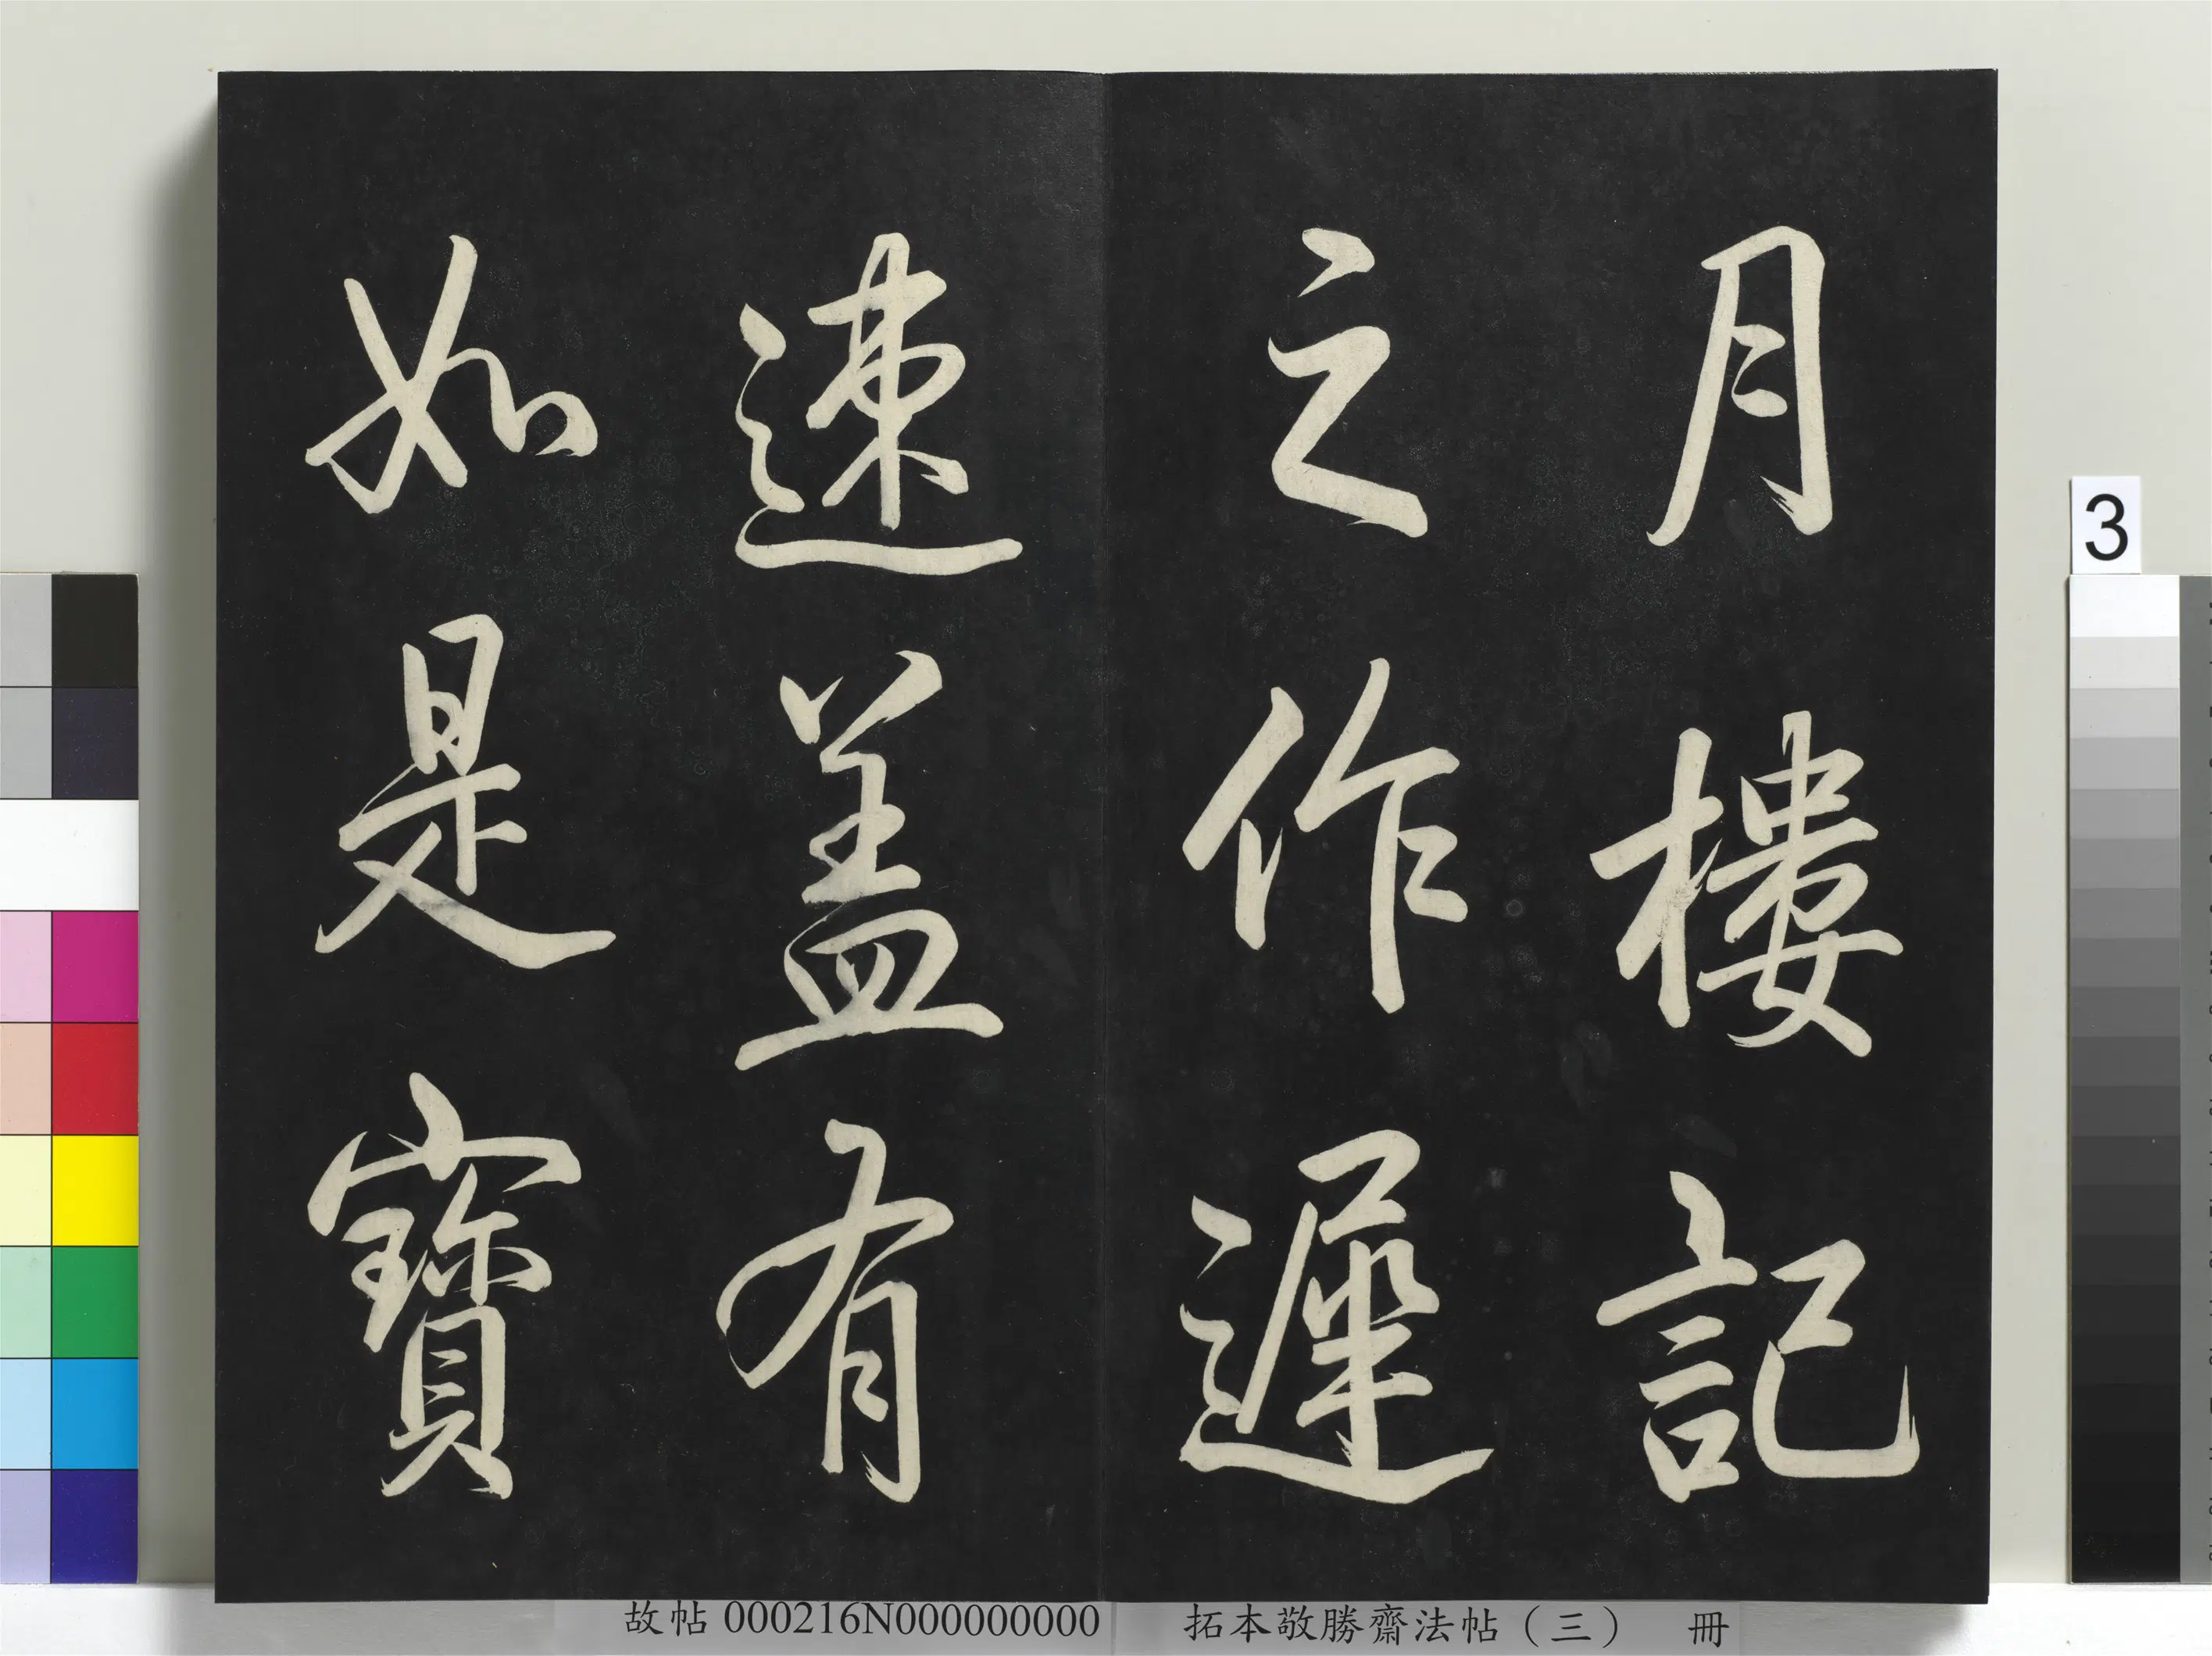 月樓記
之作遲
速蓋有
如是寶
3
故帖 000216N000000000
拓本敬勝齋法帖（三） 冊